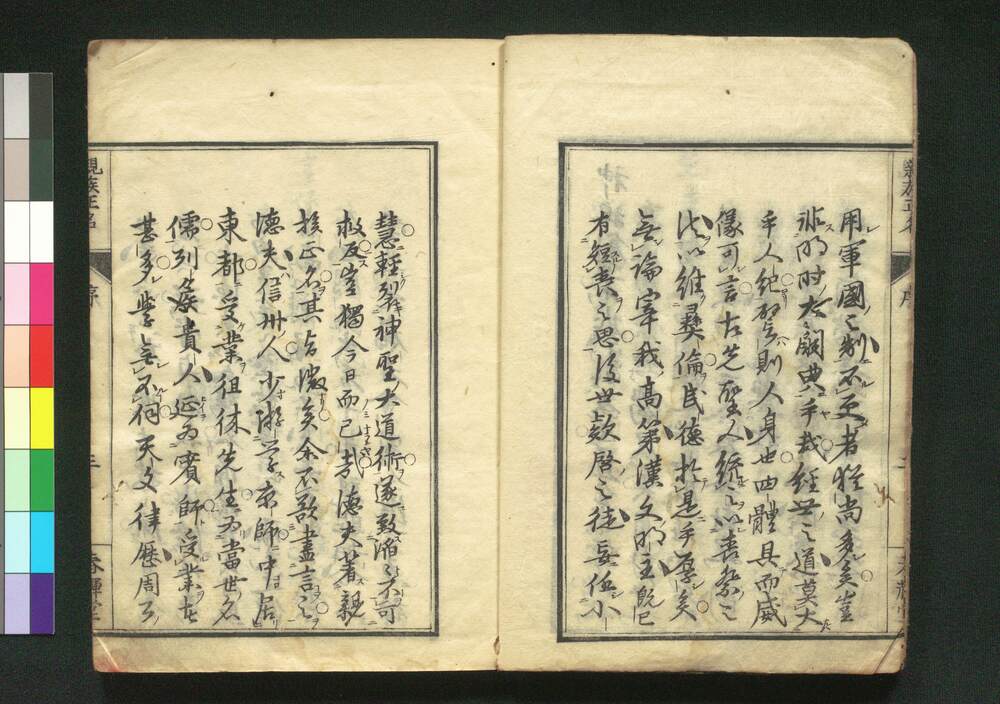 用軍國之制不足者猶尚多矣豈
非明时大闕典乎哉經世之道莫大
乎人紀譬則人身也四體具而威
儀可言古先聖人統之以喪祭之
法以維彝倫民德於是乎厚矣
無論宰我高第漢文明主既已
有短喪之思後世啓之徒妄任小
慧輕裂神聖大道術遂致滔之不可
救反豈獨今日而已哉德夫著親
族正名其旨微矣余不欲盡言之
德夫信州人少游学京師中居
東都受業徂徠先生為當世名
儒列侯貴人延為賓師受業者
甚多学無不何天文律歷周
親族正名 序
春輝堂